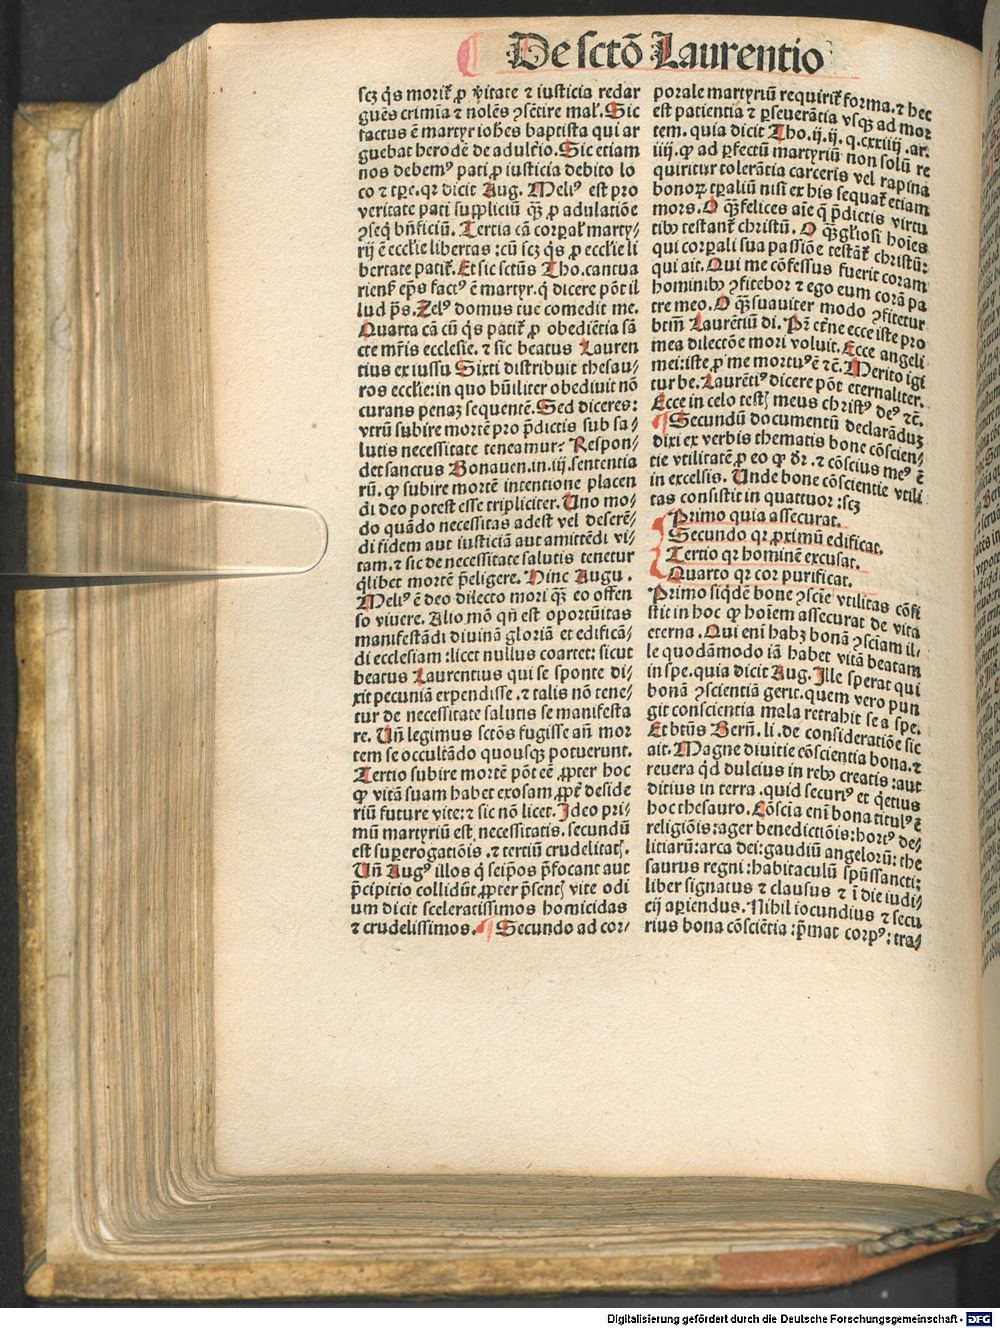 De sctō Laurentio
scꝫ q̄s morit᷑ ꝓ v̓itate ⁊ iusticia redar
guēs crimīa ⁊ nolēs ↄsētire mal᷑. Sic
factus ē martyr ioh̄es baptista qui ar
guebat herodē de adult̓io. Sic etiam
nos debemꝰ pati ꝓ iusticia debito lo
co ⁊ tꝑe. qꝛ dicit Aug. Meliꝰ est pro
veritate pati suppliciū qꝫ̄ ꝓ adulatiōe
ↄseq̄ bn̄ficiū. Tertia cā corꝑal᷑ marty⸗
rij ē eccl̓ie libertas : cū scꝫ q̄s ꝓ eccl̓ie li
bertate patit᷑. Et sic sctūs Tho. cantua
rien̄ ep̄s factꝰ ē martyr. q̄ dicere pōt il
lud p̄s. Zelꝰ domus tue comedit me.
Quarta cā cū q̄s patit᷑ ꝓ obediētia sā
cte mr̄is ecclesie. ⁊ sic beatus Lauren
tius ex iussu Sixti distribuit thesau⸗
ros eccl̓ie: in quo hūiliter obediuit nō
curans penaꝫ sequentē. Sed diceres:
vtrū subire mortē pro p̄dictis sub sa⸗
lutis necessitate teneamur? Respon⸗
det sanctus Bonauen. in. iij. sententia
rū. ꝙ subire mortē intentione placen
di deo potest esse tripliciter. Uno mo⸗
do quādo necessitas adest vel deserē⸗
di fidem aut iusticiā aut amittēdi vi⸗
tam. ⁊ sic de necessitate salutis tenetur
q̄libet mortē p̄eligere. Hinc Augu.
Meliꝰ ē deo dilecto mori qꝫ̄ eo offen
so viuere. Alio mō qn̄ est oportūitas
manifestādi diuinā gloriā et edificā⸗
di ecclesiam : licet nullus coartet: sicut
beatus Laurentius qui se sponte di⸗
xit pecuniā expendisse. ⁊ talis nō tene⸗
tur de necessitate salutis se manifesta
re. Un̄ legimus sctōs fugisse an̄ mor
tem se occultādo quousqꝫ potuerunt.
Tertio subire mortē pōt eē ꝓpter hoc
ꝙ vitā suam habet exosam, ꝓpt̄ deside
riū future vite: ⁊ sic nō licet. Ideo pri⸗
mū martyriū est necessitatis. secundū
est supererogatiōis. ⁊ tertiū crudelitatꝭ.
Un̄ Augꝰ illos q̄ seip̄os p̄focant aut
p̄cipitio collidūt, ꝓpter p̄sentꝭ vite odi
um dicit sceleratissimos homicidas
⁊ crudelissimos. ¶ Secundo ad cor⸗
porale martyriū requirit᷑ forma. ⁊ hec
est patientia ⁊ ꝑseuerātia vsqꝫ ad mor
tem. quia dicit Tho. ij. ij. q. cxxiiij. ar.
iiij. ꝙ ad ꝑfectū martyriū non solū re
quiritur tolerātia carceris vel rapina
bonoꝝ tꝑaliū nisi ex his sequat᷑ etiam
mors. O qꝫ̄ felices aīe q̄ p̄dictis virtu
tibꝰ testant᷑ christū. O qꝫ̄ gl̓iosi hoīes
qui corꝑali sua passiōe testāt᷑ christū:
qui ait. Qui me cōfessus fuerit coram
hominibꝰ ↄfitebor ⁊ ego eum corā pa
tre meo. O qꝫ̄ suauiter modo ↄfitetur
btm̄ Laurētiū di. Pr̄ et̓ne ecce iste pro
mea dilectōe mori voluit. Ecce angeli
mei: iste ꝓ me mortuꝰ ē ⁊c̄. Merito igi
tur be. Laurētiꝰ dicere pōt eternaliter.
Ecce in celo testꝭ meus christꝰ deꝰ ⁊c̄.
¶ Secundū documentū declarāduꝫ
dixi ex verbis thematis bone cōscien⸗
tie vtilitatē, ꝓ eo ꝙ dr̄. ⁊ cōscius meꝰ ē
in excelsis. Unde bone cōscientie vtili
tas consistit in quattuor : scꝫ
Primo quia assecurat.
Secundo qꝛ ꝓximū edificat.
Tertio qꝛ hominē excusat.
Quarto qꝛ cor purificat.
Primo siqdē bone ↄscīe vtilitas cōsi
stit in hoc ꝙ hoīem assecurat de vita
eterna. Qui enī habꝫ bonā ↄsciam il⸗
le quodāmodo iā habet vitā beatam
in spe. quia dicit Aug. Ille sperat qui
bonā ↄscientiā gerit. quem vero pun
git conscientia mala retrahit se a spe.
Et btūs Bern̄. li. de consideratiōe sic
ait. Magne diuitie cōscientia bona. ⁊
reuera qd̄ dulcius in rebꝰ creatis : aut
ditius in terra. quid securiꝰ et qetius
hoc thesauro. Cōscīa enī bona titulꝰ ē
religiōis: ager benedictiōis: hortꝰ de⸗
litiarū: arca dei: gaudiū angelorū: the
saurus regni : habitaculū spūssancti:
liber signatus ⁊ clausus ⁊ ī die iudi⸗
cij aperiendus. Nihil iocundius ⁊ secu
rius bona cōsciētia : p̄mat corpꝰ: tra⸗
Digitalisierung gefördert durch die Deutsche Forschungsgemeinschaft - DFG